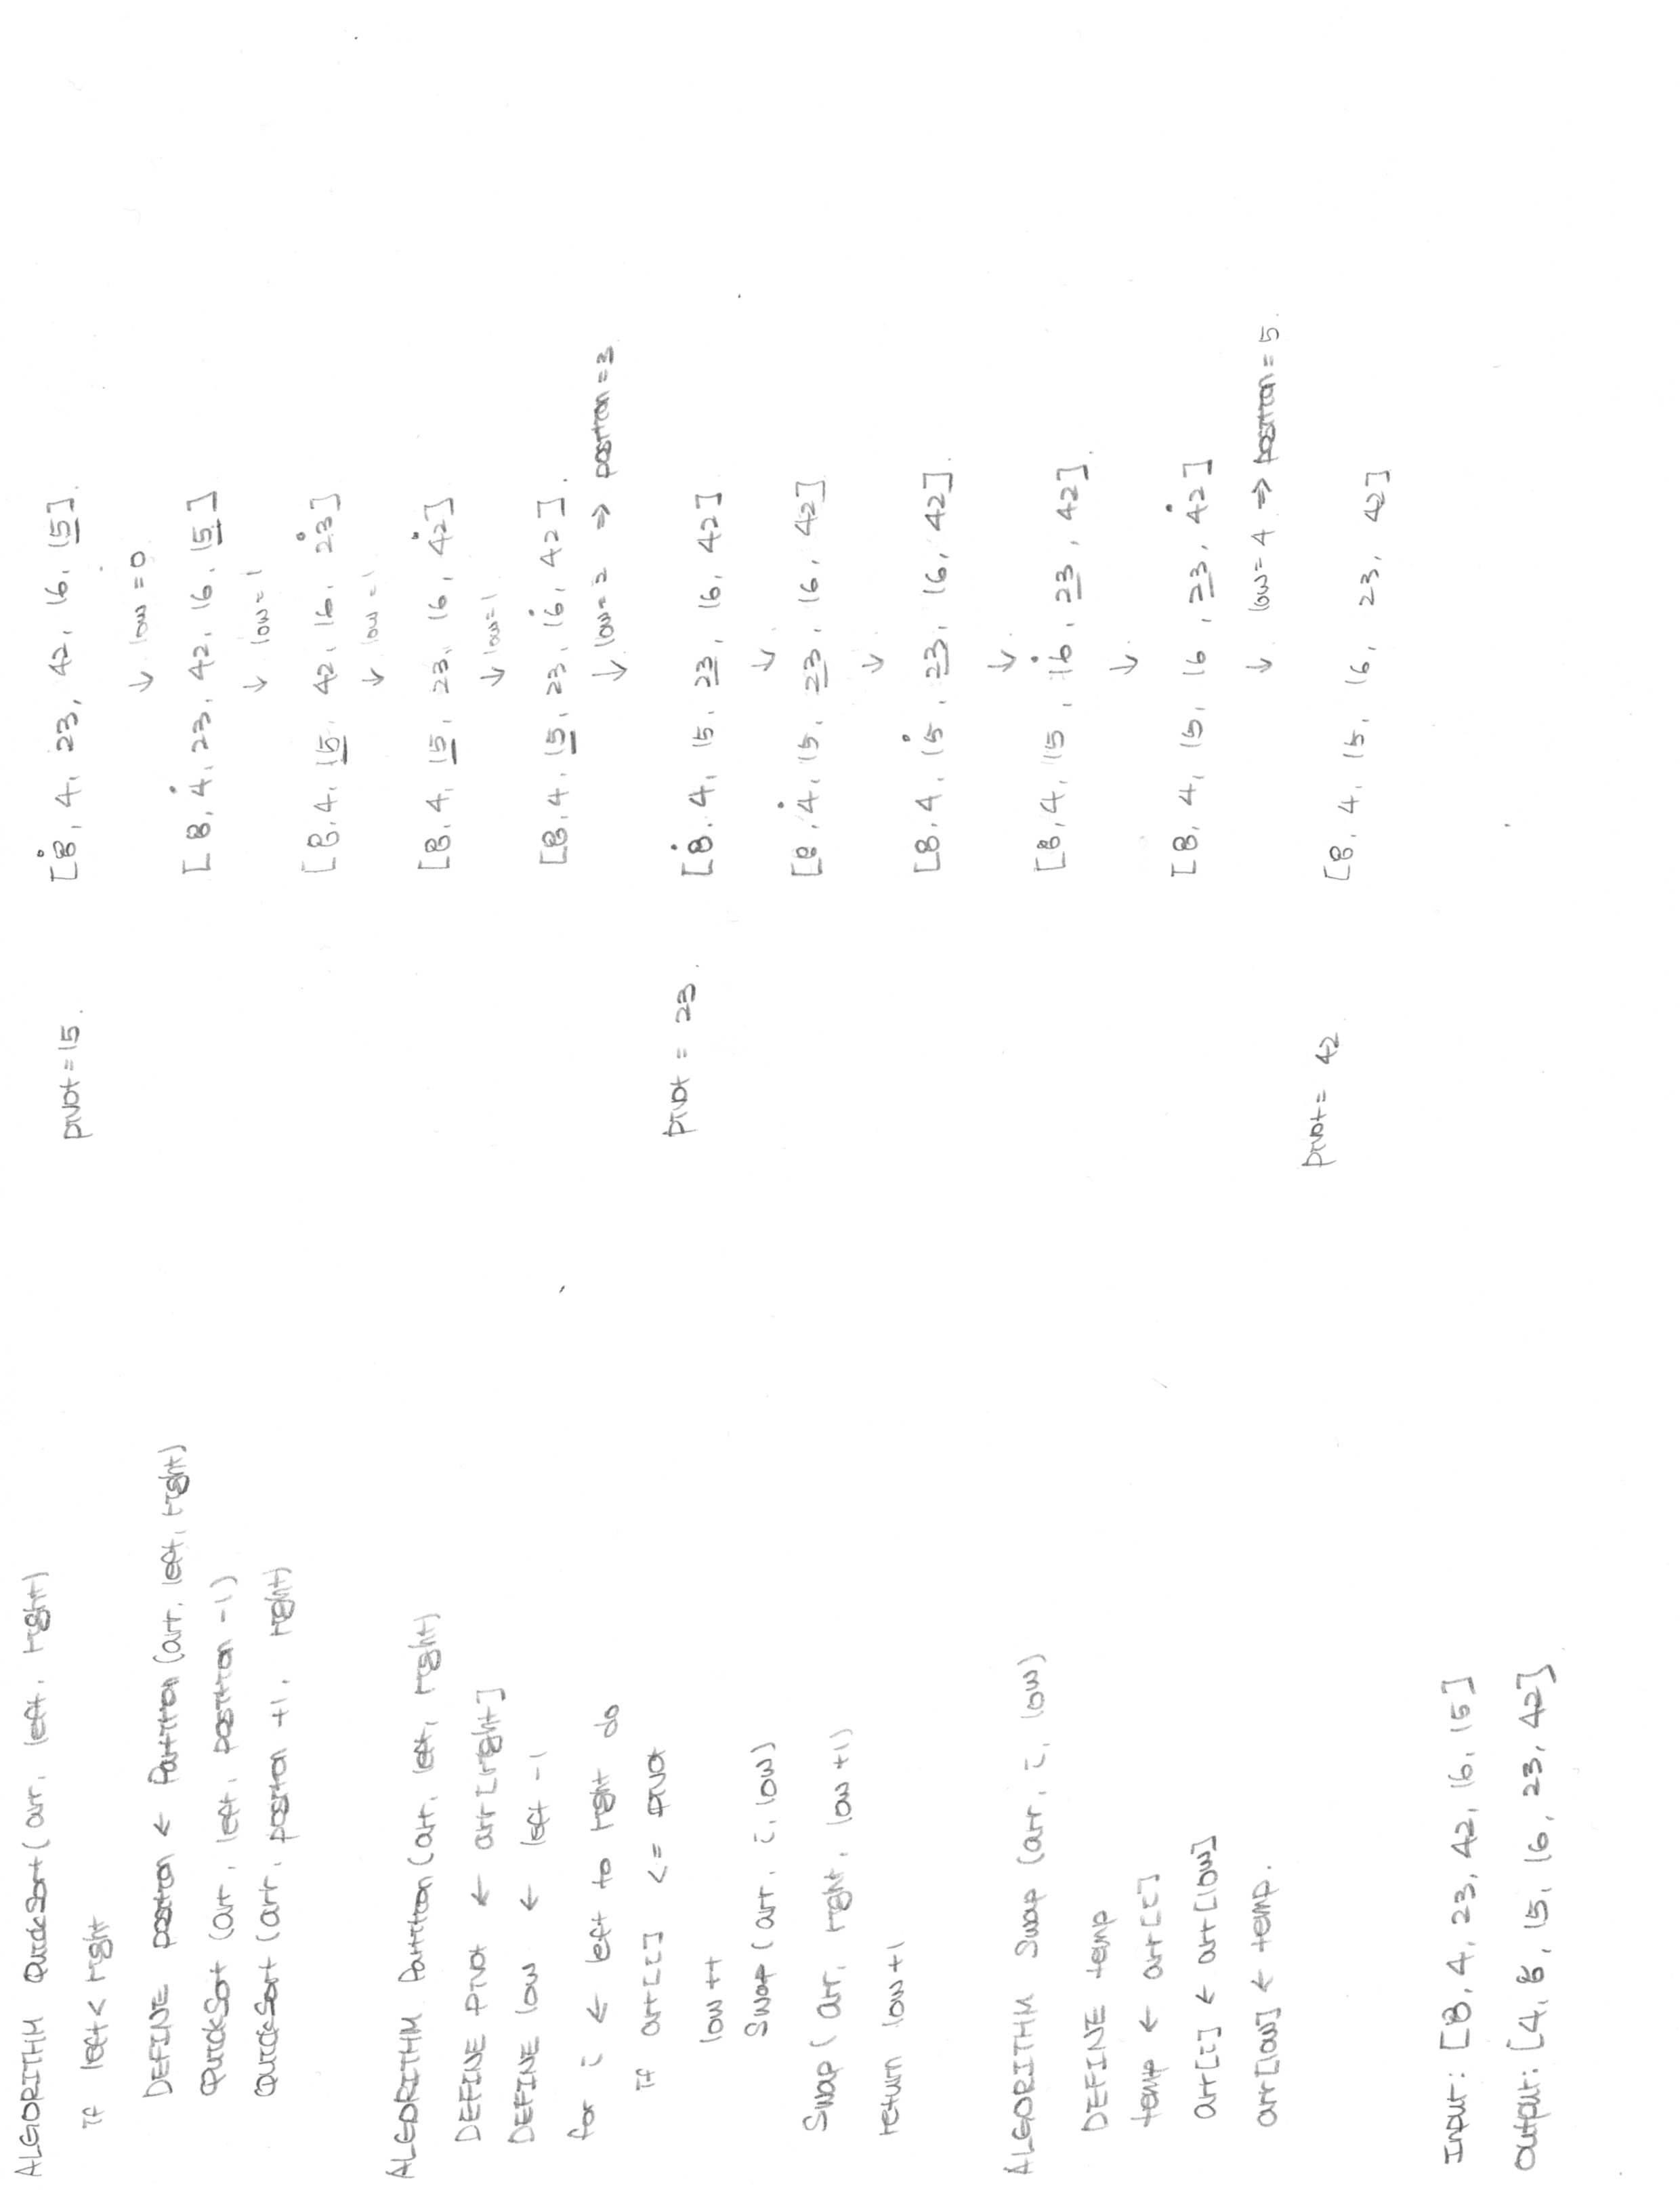 ALGORITHM QuickSort( arr, left, right)
if left < right
DEFINE position ← Partition (arr, left, right)
QuickSort (arr, left, position -1)
QuickSort (arr, position +1, right)
ALGORITHM Partition (arr, left, right)
DEFINE pivot ← arr[right]
DEFINE low ← left -1
for i ← left to right do
if arr[i] <= pivot
low ++
Swap (arr, i, low)
Swap ( arr, right, low +1)
return low+1
ALGORITHM Swap (arr, i, low)
DEFINE temp
temp ← arr[i]
arr[i] ← arr[low]
arr[low] ← temp.
Input: [8, 4, 23, 42, 16, 15]
Output: [4, 8, 15, 16, 23, 42]
pivot = 15. [8, 4, 23, 42, 16, 15].
↓ low = 0
[8, 4, 23, 42, 16, 15]
↓ low = 1
[8, 4, 15, 42, 16, 23]
↓ low = 1
[8, 4, 15, 23, 16, 42]
↓ low=1
[8, 4, 15, 23, 16, 42].
↓ low= 2 ⇒ position = 3
pivot = 23. [8, 4, 15, 23, 16, 42]
↓
[8, 4, 15, 23, 16, 42]
↓
[8, 4, 15, 23, 16, 42].
↓
[8, 4, 15, 16, 23, 42].
↓
[8, 4, 15, 16, 23, 42]
↓ low= 4 ⇒ position = 5.
pivot = 42 [8, 4, 15, 16, 23, 42]